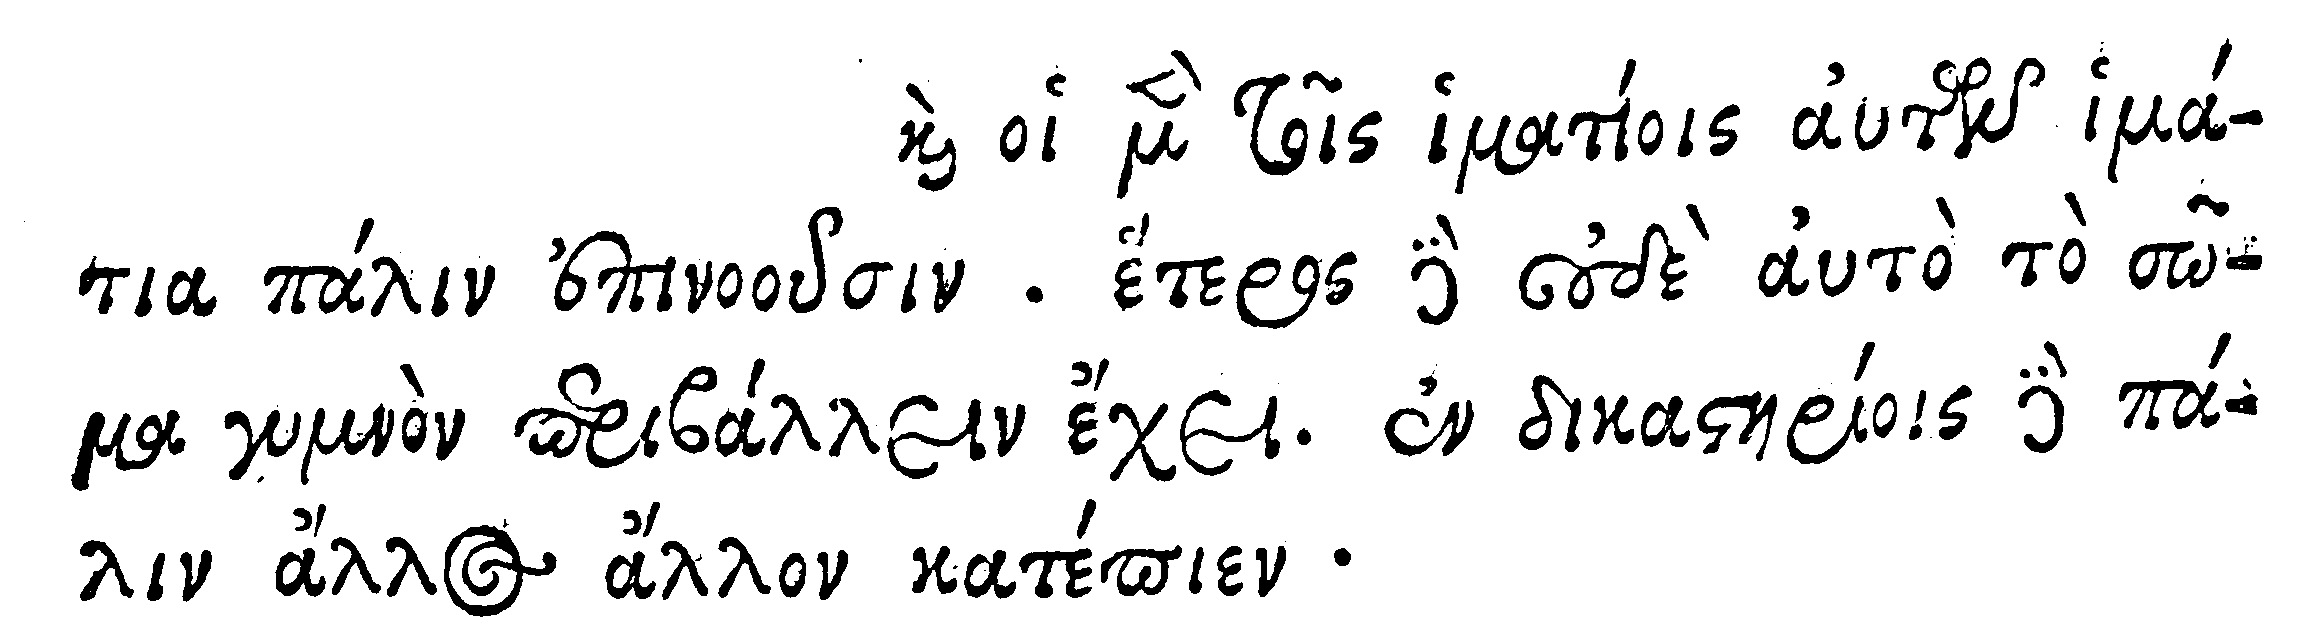 καὶ οἱ μὲν τοῖς ἱματίοις αὐτῶν ἱμά-
τια πάλιν ἐπινοοῦσιν . ἕτερος δὲ οὐδὲ αὐτὸ τὸ σῶ-
μα γυμνὸν περιβάλλειν ἔχει. ἐν δικαστηρίοις δὲ πά-
λιν ἄλλος ἄλλον κατέπιεν .